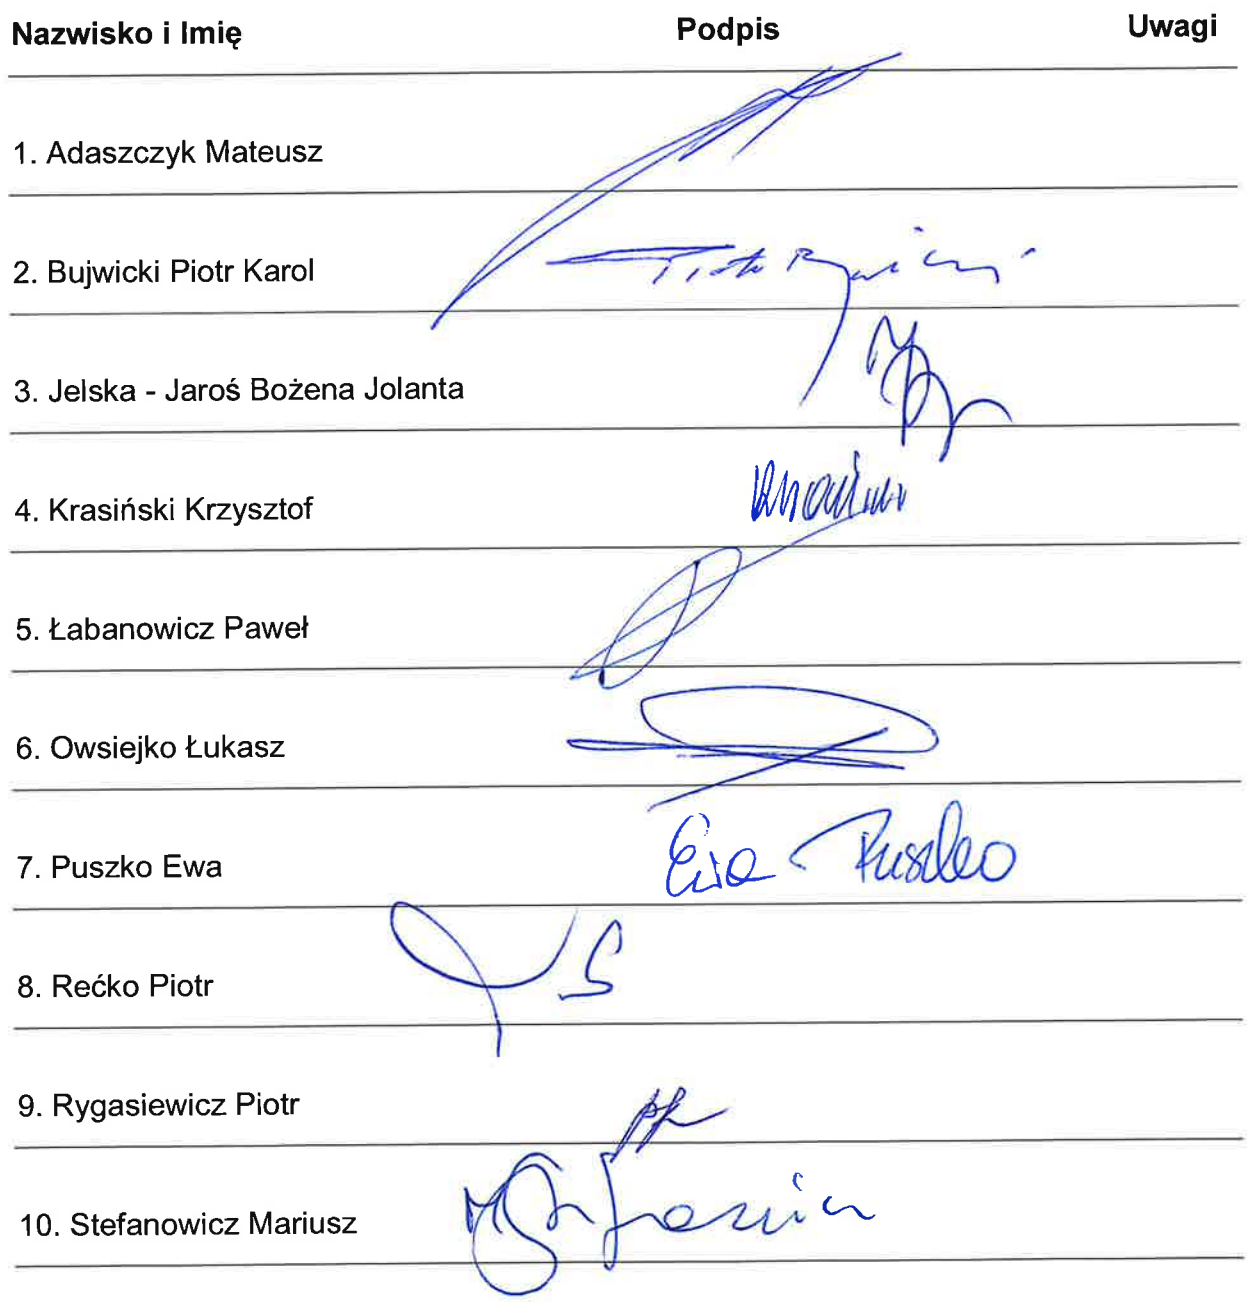 Nazwisko i Imię Podpis Uwagi
1. Adaszczyk Mateusz
2. Bujwicki Piotr Karol
3. Jelska - Jaroś Bożena Jolanta
4. Krasiński Krzysztof
5. Łabanowicz Paweł
6. Owsiejko Łukasz
7. Puszko Ewa Ewa Puszko
8. Rećko Piotr
9. Rygasiewicz Piotr
10. Stefanowicz Mariusz